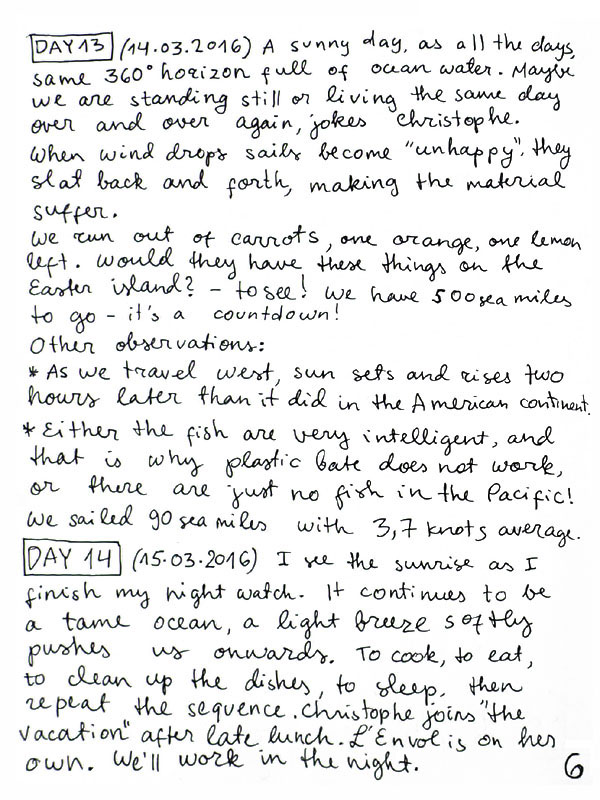 DAY 13 (14.03.2016) A sunny day, as all the days,
same 360° horizon full of ocean water. Maybe
we are standing still or living the same day
over and over again, jokes Christophe.
When wind drops sails become "unhappy". they
slat back and forth, making the material
suffer.
We run out of carrots, one orange, one lemon
left. Would they have these things on the
Easter island? - to see! We have 500 sea miles
to go - it's a countdown!
Other observations:
* As we travel west, sun sets and rises two
hours later than it did in the American continent.
* Either the fish are very intelligent, and
that is why plastic bate does not work,
or there are just no fish in the Pacific!
We sailed 90 sea miles with 3,7 knots average.
DAY 14 (15.03.2016) I see the sunrise as I
finish my night watch. It continues to be
a tame ocean, a light breeze softly
pushes us onwards. To cook, to eat,
to clean up the dishes, to sleep. then
repeat the sequence. Christophe joins "the
vacation" after late lunch. L'Envol is on her
own. We'll work in the night.
6